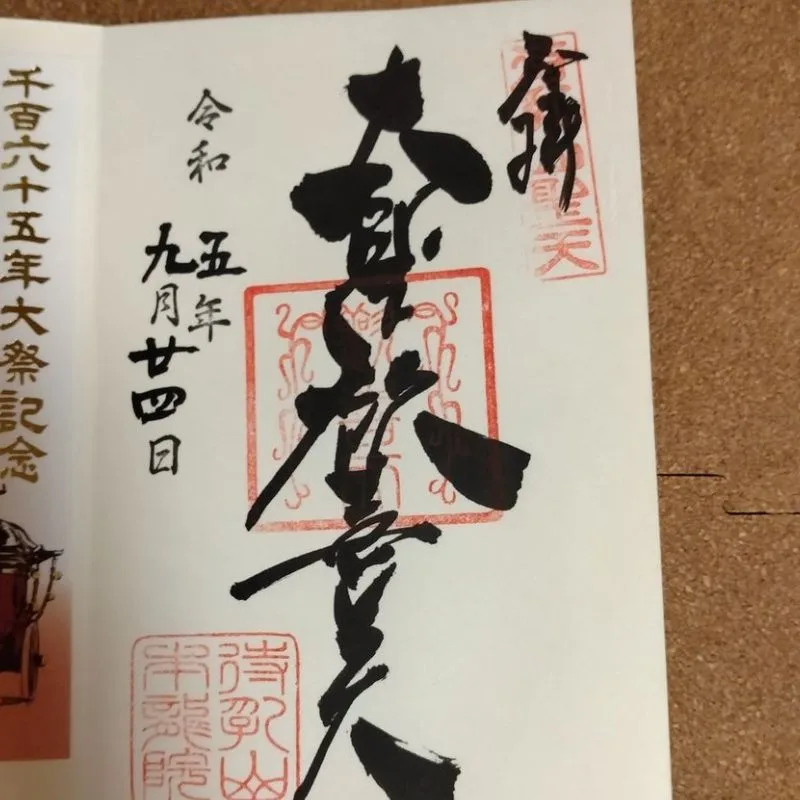 奉拝
大聖歓喜天
令和
五年
九月
廿四日
待乳山
本龍院
聖天
千百六十五年大祭記念